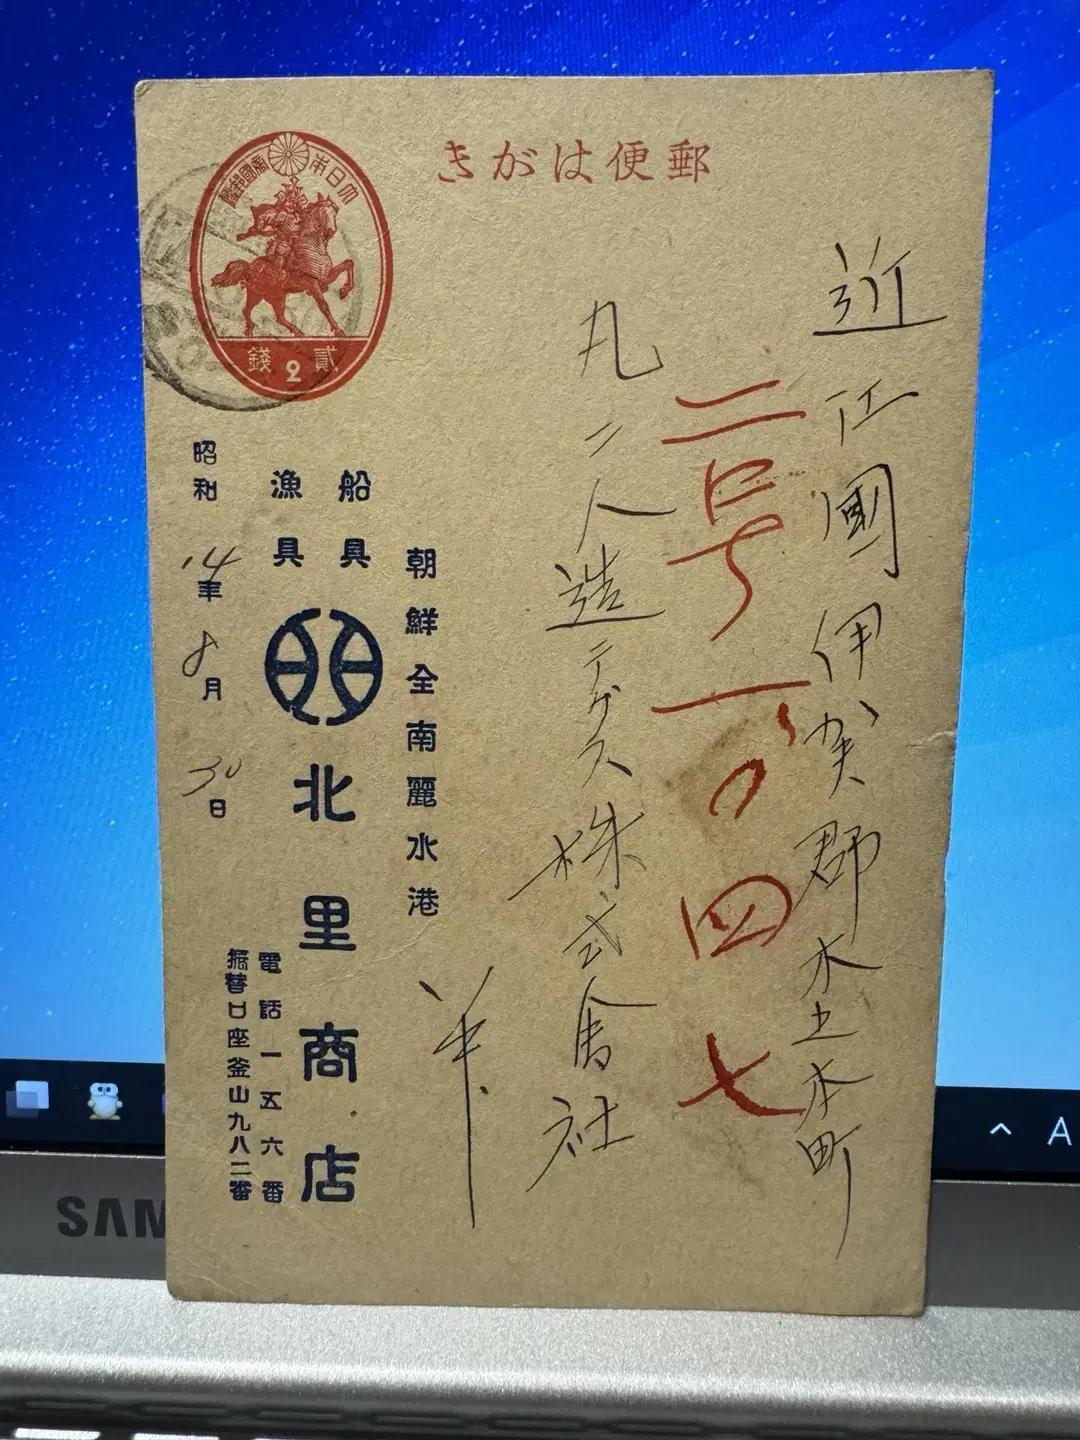 郵便はがき
大日本帝國郵便
貳 2 錢
近江國伊賀郡木之本町
二号一六〇四七
丸二人造テグス株式會社
朝鮮全南麗水港
船具
漁具
北里商店
電話一五六番
振替口座釜山九八二番
昭和14年8月30日
SAM
A